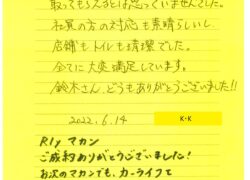 取ってもらえるとは思っていませんでした。
社員の方の対応も素晴らしいし、
店舗もトイレも清潔でした。
全てに大変満足しています。
鈴木さん、どうもありがとうございました!!
2022.6.14
K・K
R1y マカン
ご成約ありがとうございました!
お次のマカンでも、カーライフを